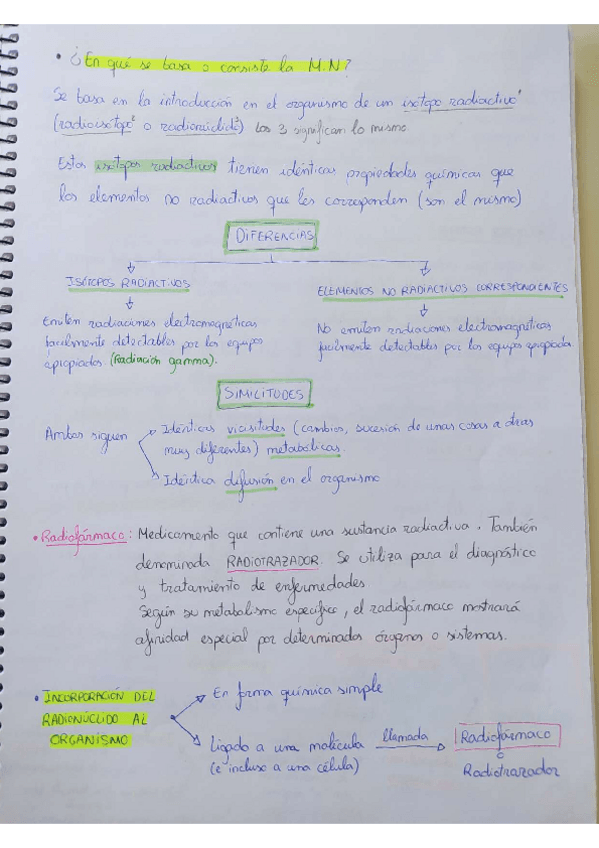 • ¿En qué se basa o consiste la M.N?
Se basa en la introducción en el organismo de un isótopo radiactivo¹
(radioisótopo² o radionúclido³) Los 3 significan lo mismo
Estos isótopos radiactivos tienen idénticas propiedades químicas que
los elementos no radiactivos que les corresponden (son el mismo)
DIFERENCIAS
ISÓTOPOS RADIACTIVOS
ELEMENTOS NO RADIACTIVOS CORRESPONDIENTES
Emiten radiaciones electromagnéticas
fácilmente detectables por los equipos
apropiados (Radiación gamma).
No emiten radiaciones electromagnéticas
fácilmente detectables por los equipos apropiados
SIMILITUDES
Ambos siguen
Idénticas vicisitudes (cambios, sucesión de unas cosas a otras
muy diferentes) metabólicas.
Idéntica difusión en el organismo
• Radiofármaco: Medicamento que contiene una sustancia radiactiva. También
denominada RADIOTRAZADOR. Se utiliza para el diagnóstico
y tratamiento de enfermedades
Según su metabolismo específico, el radiofármaco mostrará
afinidad especial por determinados órganos o sistemas.
• INCORPORACIÓN DEL
RADIONÚCLIDO AL
ORGANÍSMO
En forma química simple
Ligado a una molécula llamada Radiofármaco
(e incluso a una célula)
o
Radiotrazador